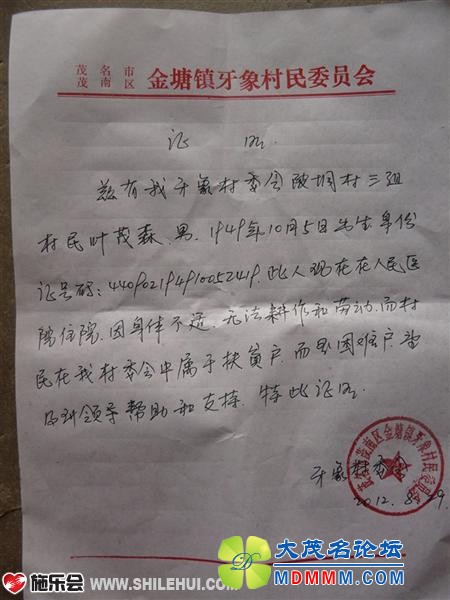 茂名市
茂南区
金塘镇牙象村民委员会
证 明
兹有我牙象村委会陂垌村三组
村民叶茂森、男、1949年10月5日出生身份
证号码:440902194910052419.此人现在在人民医
院住院、因身体不适、无法耕作和劳动.而村
民在我村委会中属于扶贫户.而且困难户.
领导帮助和支持.特此证明.
牙象村委会
2012.8.29
茂南区金塘镇牙象村民委员会
施乐会 WWW.SHILEHUI.COM
大茂名论坛
MDMMM.COM